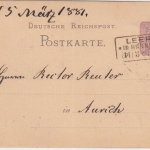 5 März 1881.
DEUTSCHE REICHSPOST.
POSTKARTE.
LEER
Herrn Rector Reuter
in
Aurich